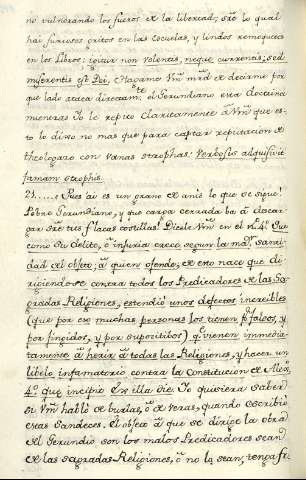 no vulnerando los fueros de la libertad; sre lo qual
hai furiosos gritos en las escuelas, y lindos remoquetes
en los Libros: igitur non volentis, neque currentis; sed
miserentis est Dei. Hagame Vm. mrd. de decirme por
que lado ataca directamte. el Gerundiano esta doctrina
mientras Yo le repito claritamente a Vm que es-
to lo dixo no mas que para captar reputacion de
theologazo con vanas strophas. Verbosus adquisivit
famam strophis.
21..... Pues ai es un grano de anis lo que se sigue!
Pobre Gerundiano, y que carga cerrada ba à descar-
gar sre tus flacas costillas! Dicele Vm en el n. 4º. Que
como su delito, ò injuria crece segun la md., santi-
dad del objeto, à quien ofende, de esto nace que di-
rigiendose contra todos los Predicadores de las Sa-
gradas Religiones, estendió unos defectos increibles
(que por ese muchas personas los tienen pr. falsos, y
por fingidos, y por supositibos) qe. vienen immedia-
tamente à herir à todas las Religiones, y hacer un
libelo infamatorio contra la Constitucion de Alex.
4º. que incipit Ex illa die. Yo quisiera saber
si Vm habló de burlas, ò de veras, quando escribió
estas sandeces. El objeto à que se dirige la obra
del Gerundio son los malos Predicadores sean
de las sagradas Religiones, ò no la sean, tenga fr.